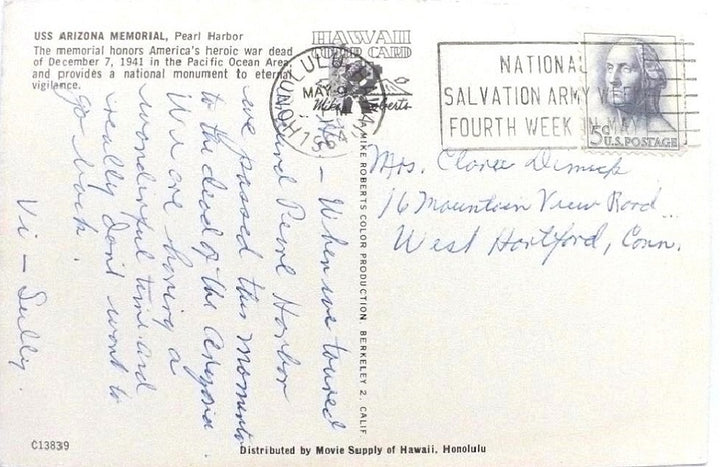 USS ARIZONA MEMORIAL, Pearl Harbor
The memorial honors America's heroic war dead
of December 7, 1941 in the Pacific Ocean Area,
and provides a national monument to eternal
vigilance.
HAWAII
COLOR CARD
Mike Roberts
HONOLULU
MAY 9
NATIONAL
SALVATION ARMY WEEK
FOURTH WEEK IN MAY
5¢ U.S. POSTAGE
Mrs. Clara Dimick
16 Mountain View Road
West Hartford, Conn.
- When we toured
around Pearl Harbor
we passed this
to the dead of the Arizona.
We are having a
wonderful time and
really don't want to
go back.
Vi - Sully.
MIKE ROBERTS COLOR PRODUCTION, BERKELEY 2, CALIF
C13839
Distributed by Movie Supply of Hawaii, Honolulu